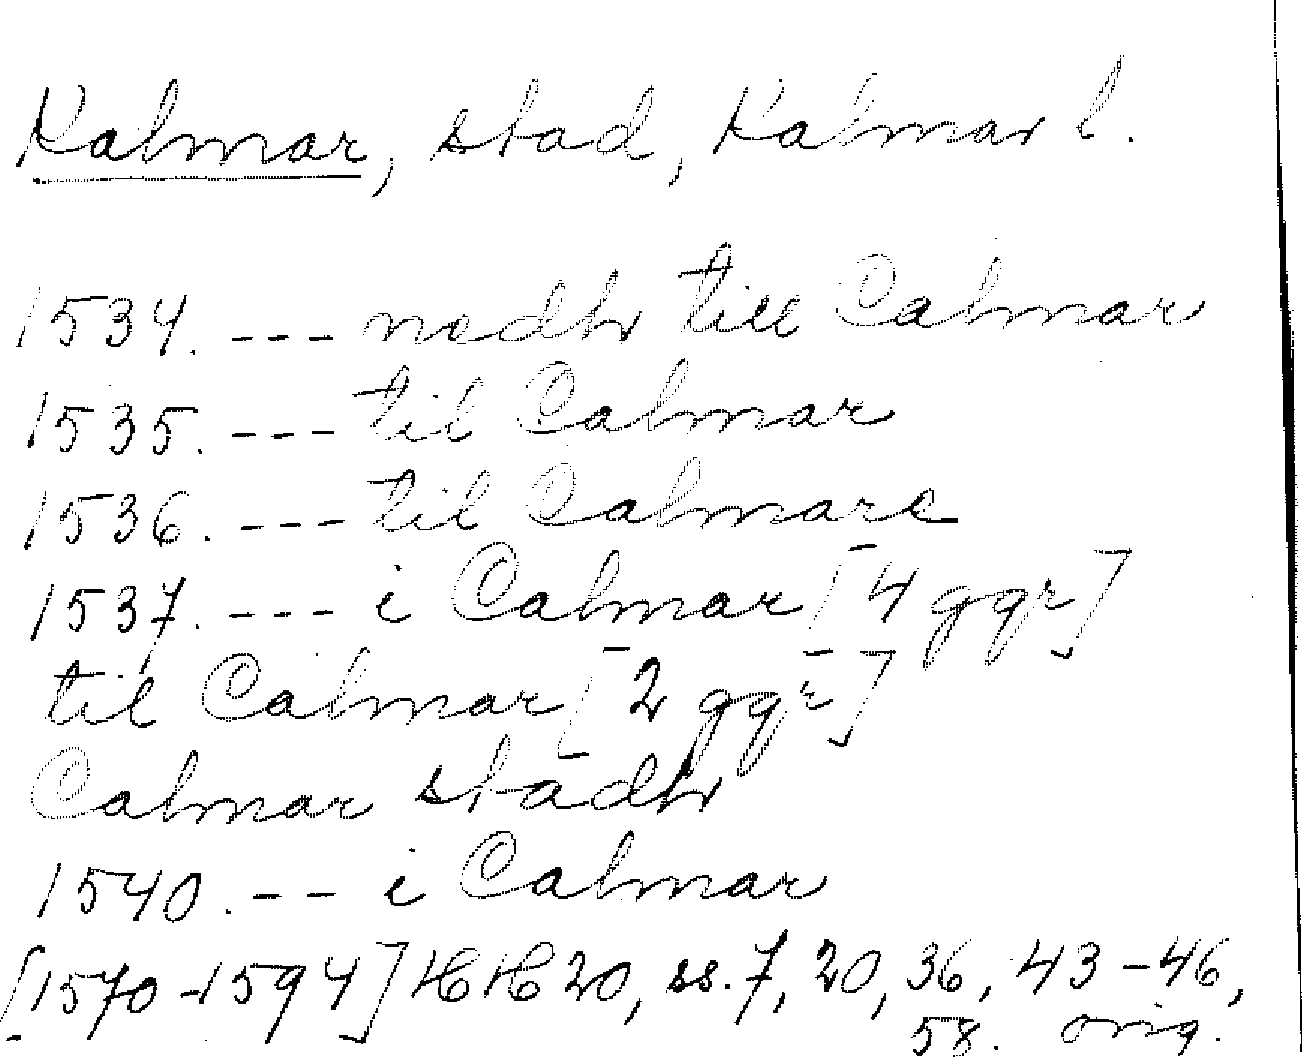 Kalmar, stad, Kalmar l.
1534. --- nedh till Calmar
1535. --- til Calmar
1536. --- til Calmare
1537. --- i Calmar [4 ggr]
til Calmar [2 ggr]
Calmar stadh
1540. -- i Calmar
[1570-1594] HH 20, ss. 7, 20, 36, 43-46,
58. orig.